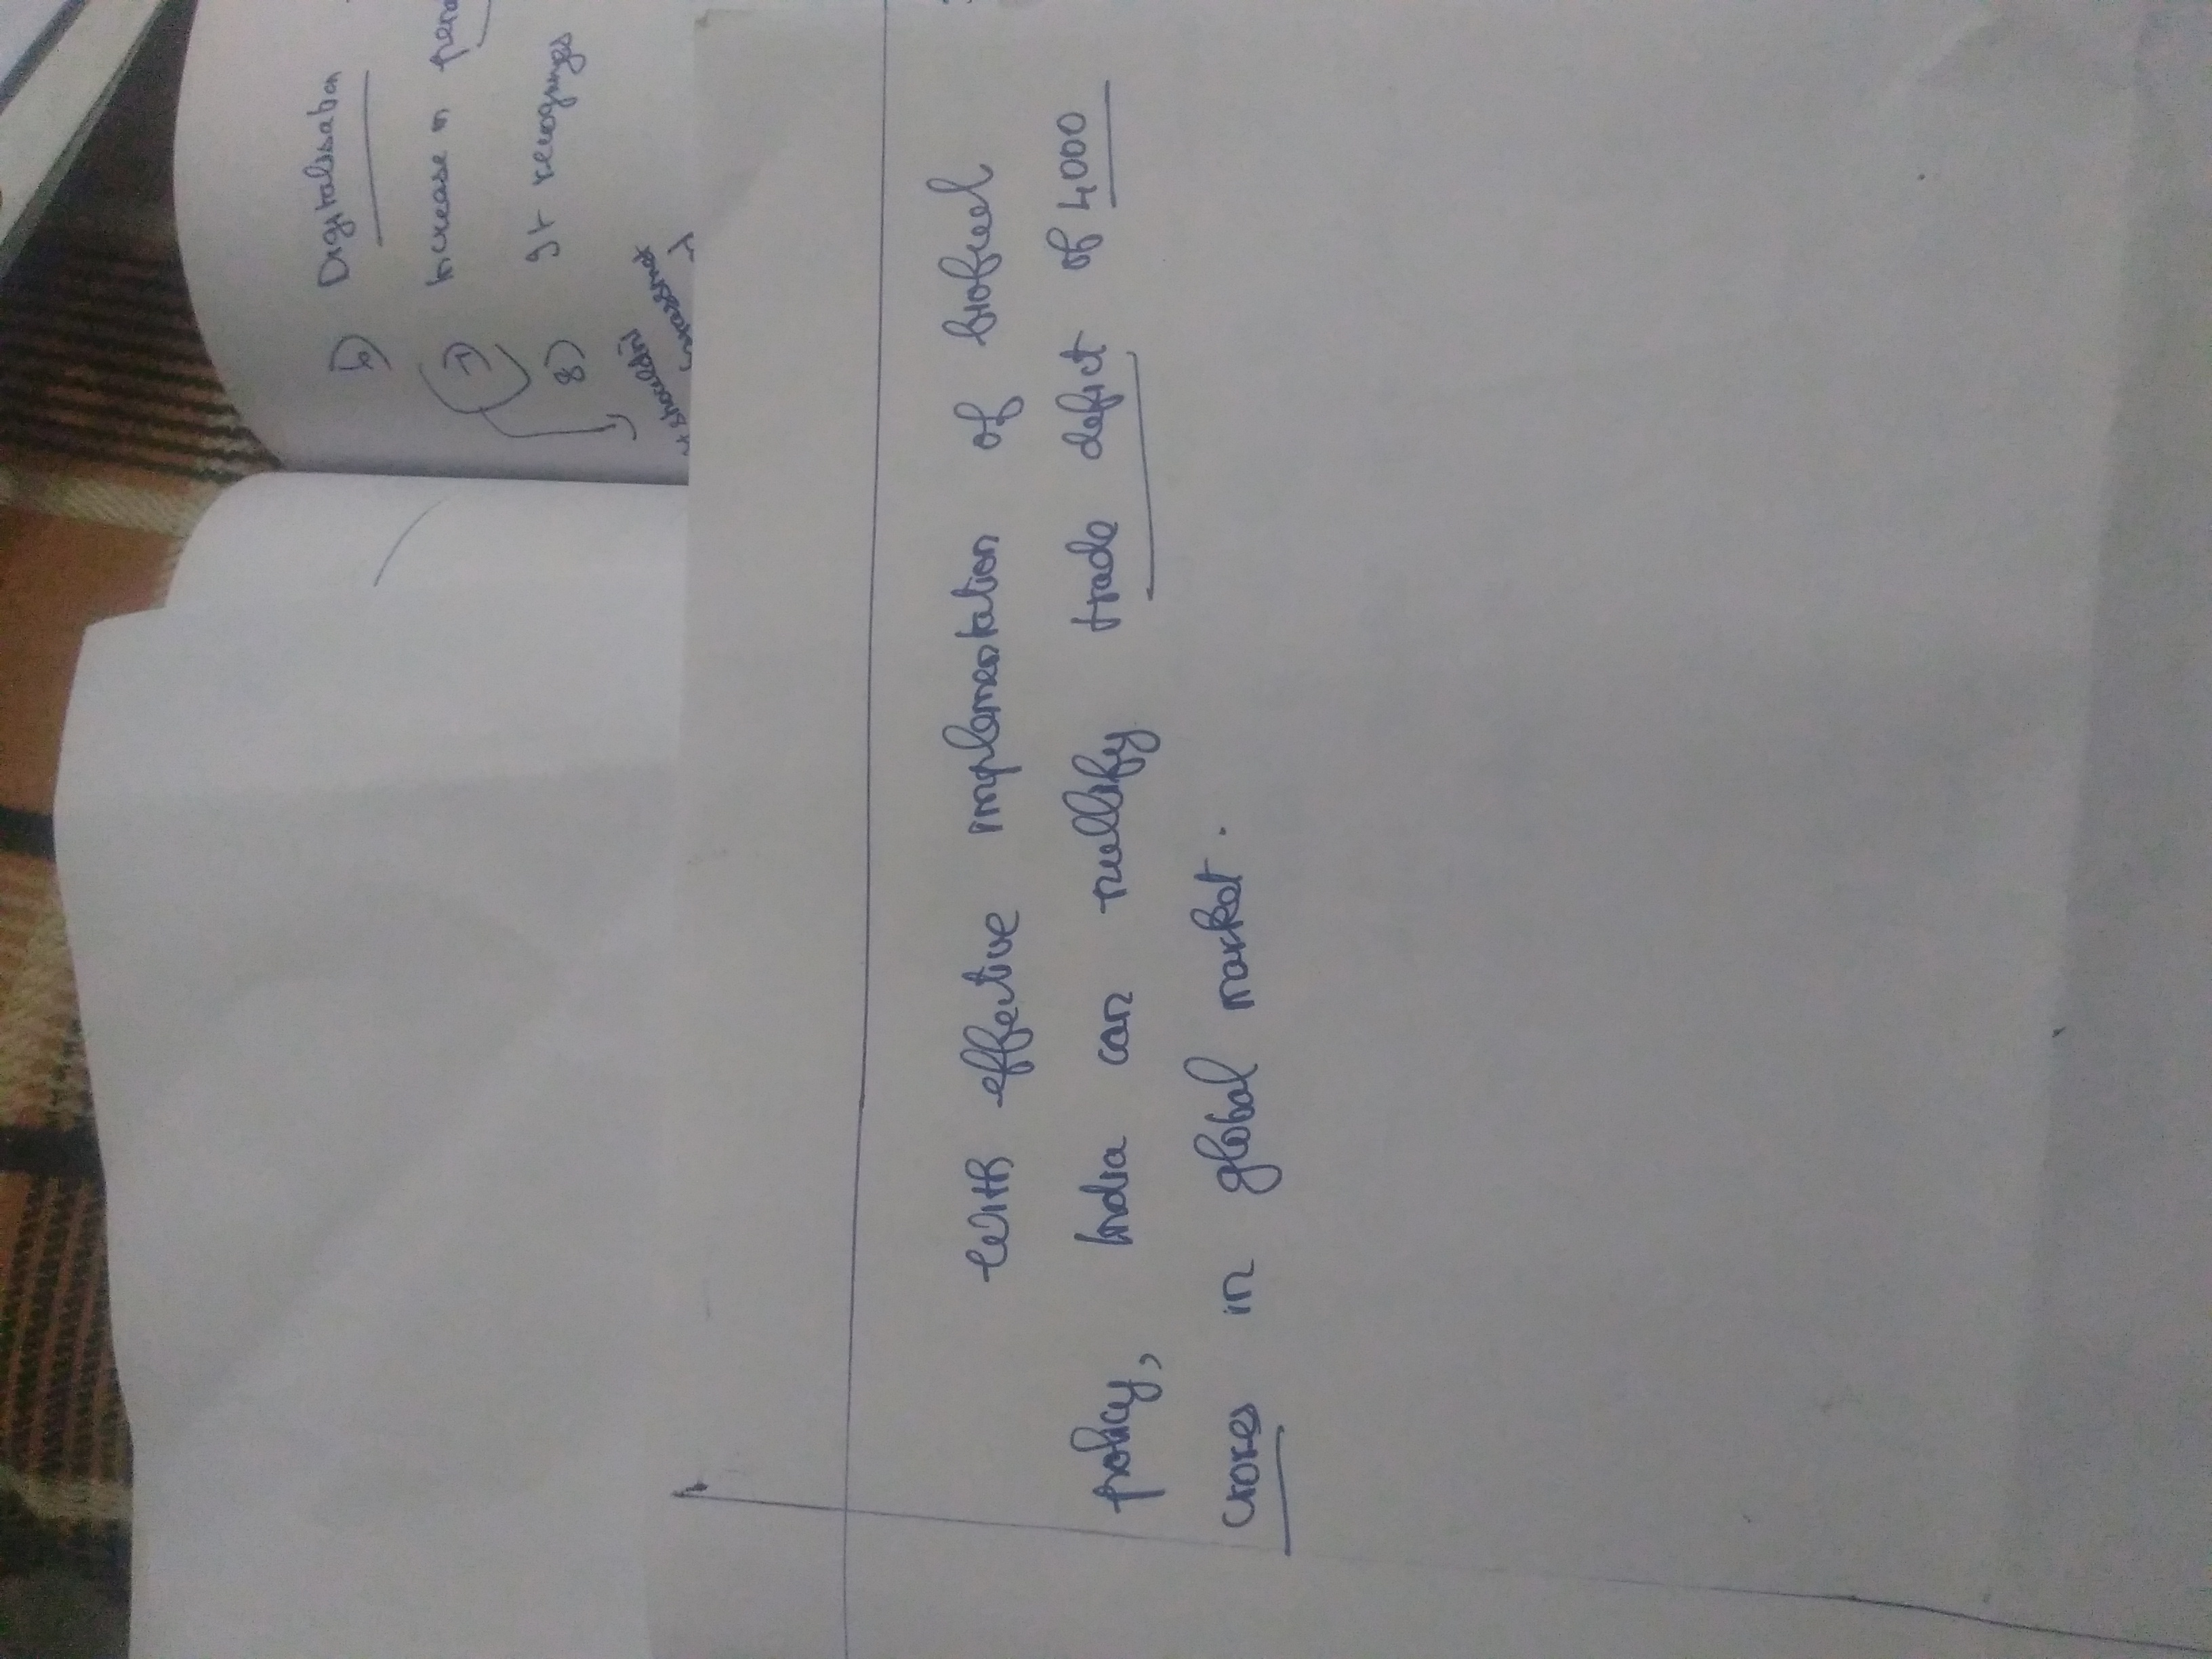 With effective implementation of biofuel
policy, India can nullify trade deficit of 4000
crores in global market.
6) Digitalisation
7) Increase in
8) It recognizes